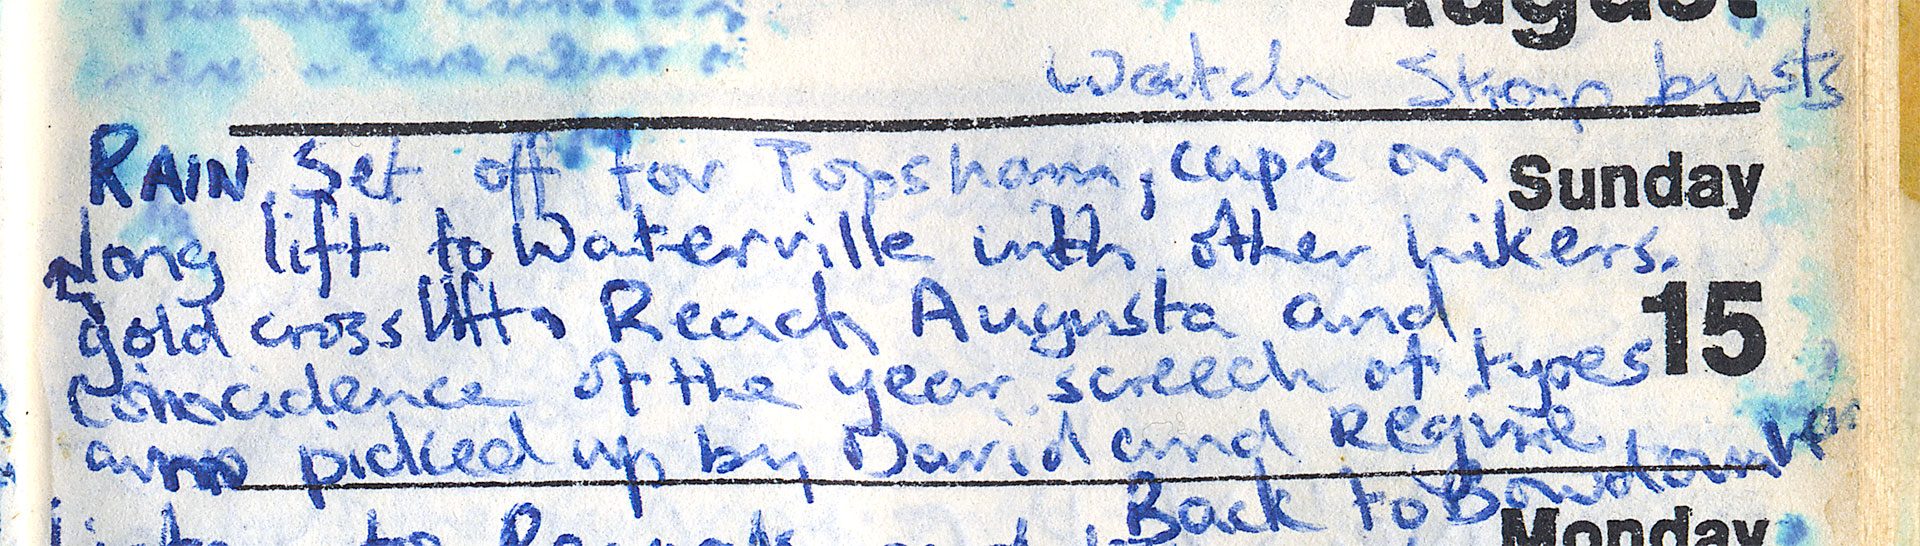 August
Watch Skarp busts
RAIN Set off for Topsham, cape on
Sunday
long lift to Waterville with other hikers.
15
gold cross lift. Reach Augusta and
coincidence of the year screech of tyres
am picked up by David and Regine
Back to Bowdoin
Monday